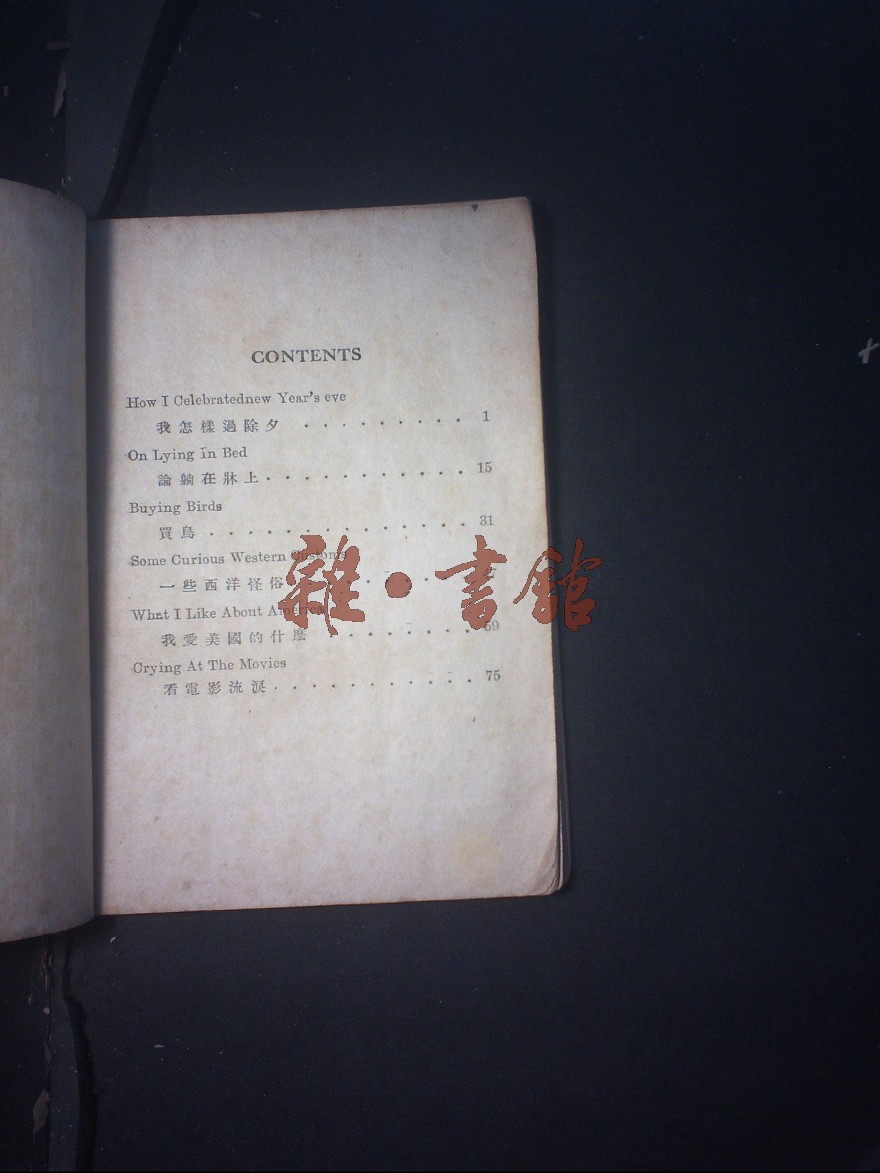 CONTENTS
How I Celebratednew Year's eve
我怎樣過除夕 · · · · · · · · · 1
On Lying in Bed
論躺在牀上 · · · · · · · · · · · 15
Buying Birds
買鳥 · · · · · · · · · · · · · 31
Some Curious Western Customs
一些西洋怪俗
What I Like About America
我愛美國的什麽 · · · · · · · · 59
Crying At The Movies
看電影流淚 · · · · · · · · · · · 75
雜·書館